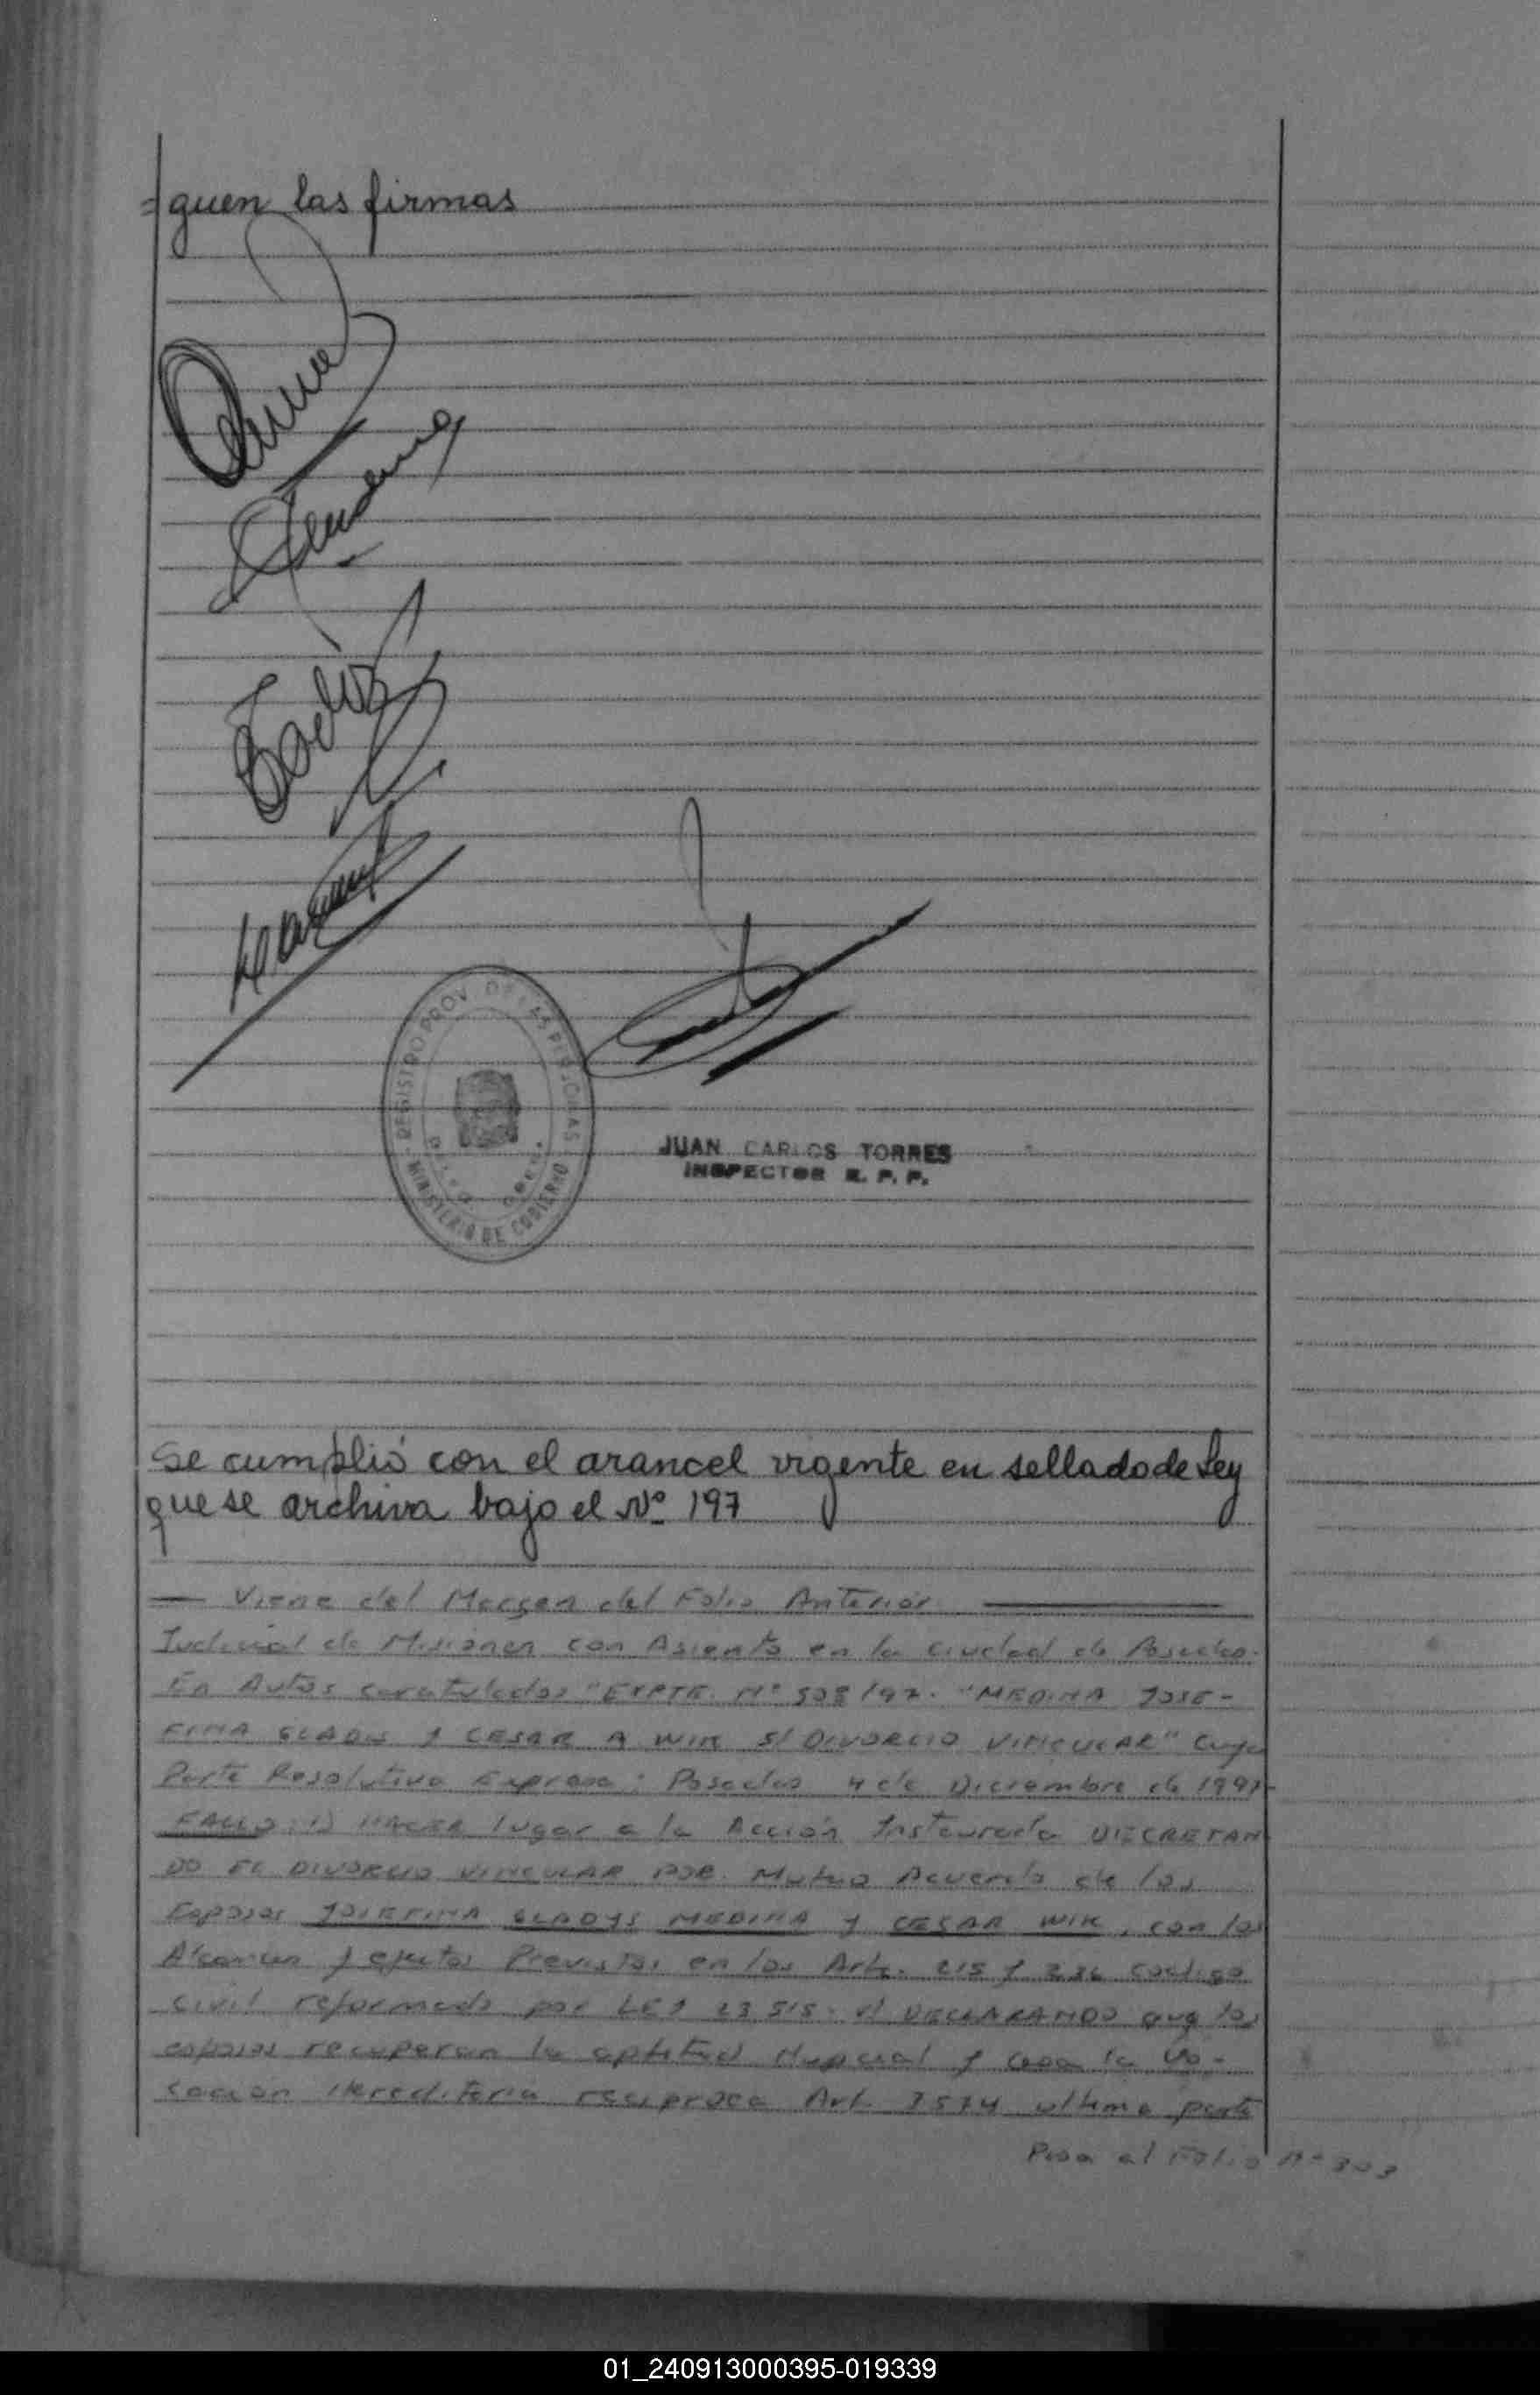 =guen las firmas
REGISTRO PROV. DE LAS PERSONAS
MINISTERIO DE GOBIERNO
JUAN CARLOS TORRES
INSPECTOR R. P. P.
Se cumplió con el arancel vigente en sellado de Ley
que se archiva bajo el Nº 197
— Viene del Margen del Folio Anterior —
Judicial de Misiones con Asiento en la ciudad de Posadas.
En Autos caratulados "EXPTE. Nº 508/97. "MEDINA JOSE-
FINA GLADIS Y CESAR A WIK S/ DIVORCIO VINCULAR" Cuya
Parte Resolutiva Expresa: Posadas 4 de Diciembre de 1997-
FALLO: 1) HACER lugar a la Acción Instaurada DECRETAN
DO EL DIVORCIO VINCULAR POR Mutuo Acuerdo de los
Esposos JOSEFINA GLADYS MEDINA Y CESAR WIK, con los
Alcances y efectos Previstos en los Art. 215 y 236 codigo
civil reformado por LEY 23.515. DECLARANDO que los
esposos recuperan la aptitud Nupcial y cesa la Vo-
cación Hereditaria reciproca Art 3574 ultima parte
Pasa al Folio Nº 303
01_240913000395-019339